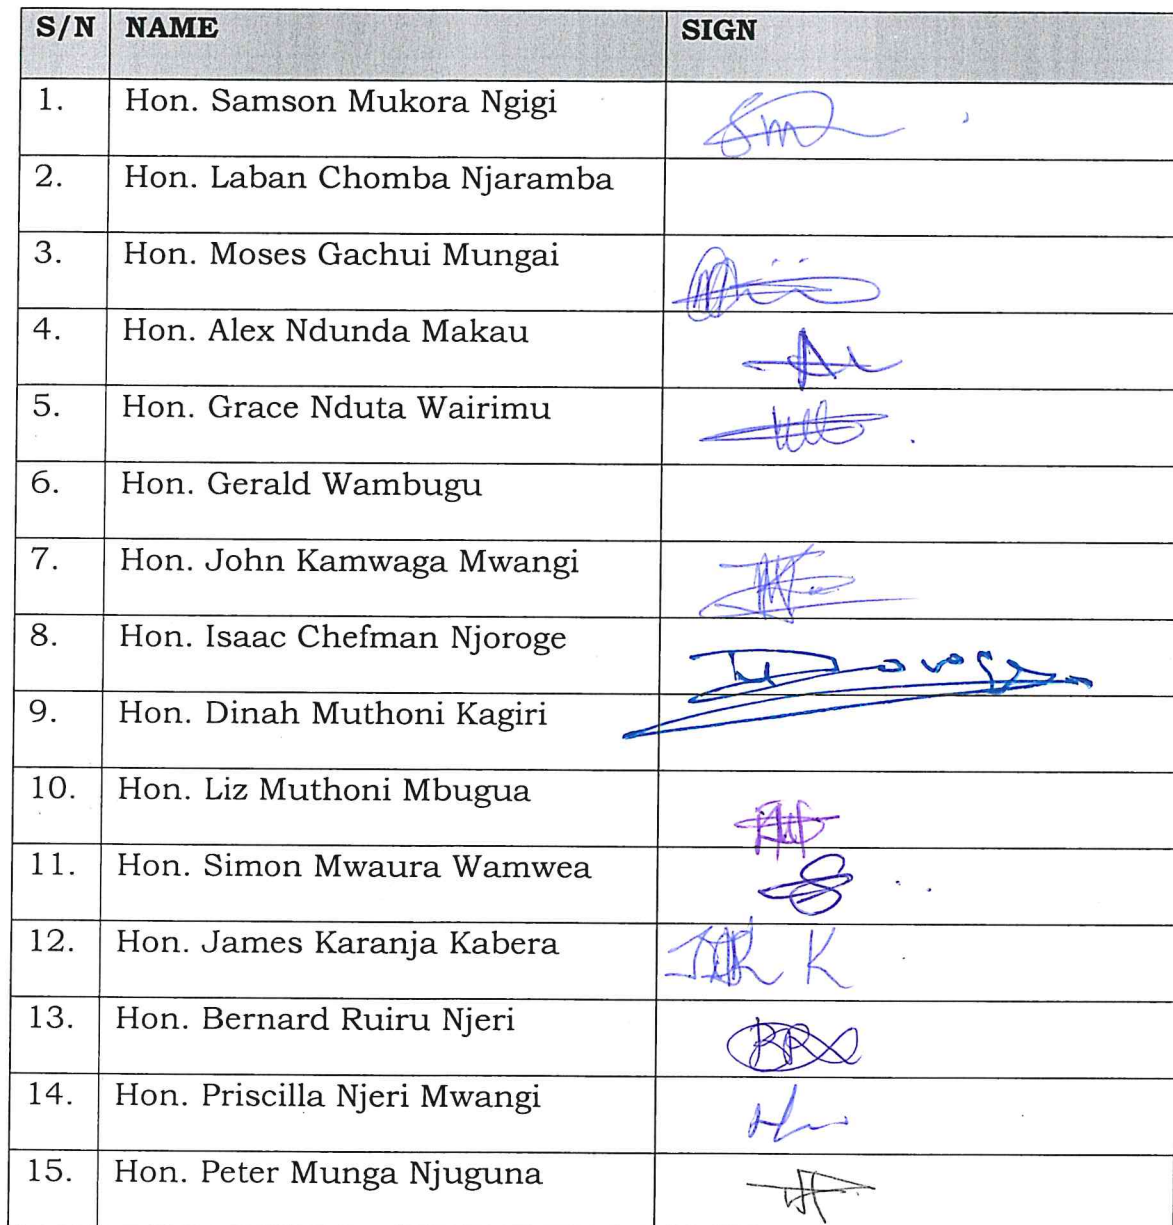 S/N NAME SIGN
1. Hon. Samson Mukora Ngigi
2. Hon. Laban Chomba Njaramba
3. Hon. Moses Gachui Mungai
4. Hon. Alex Ndunda Makau
5. Hon. Grace Nduta Wairimu
6. Hon. Gerald Wambugu
7. Hon. John Kamwaga Mwangi
8. Hon. Isaac Chefman Njoroge
9. Hon. Dinah Muthoni Kagiri
10. Hon. Liz Muthoni Mbugua
11. Hon. Simon Mwaura Wamwea
12. Hon. James Karanja Kabera
13. Hon. Bernard Ruiru Njeri
14. Hon. Priscilla Njeri Mwangi
15. Hon. Peter Munga Njuguna